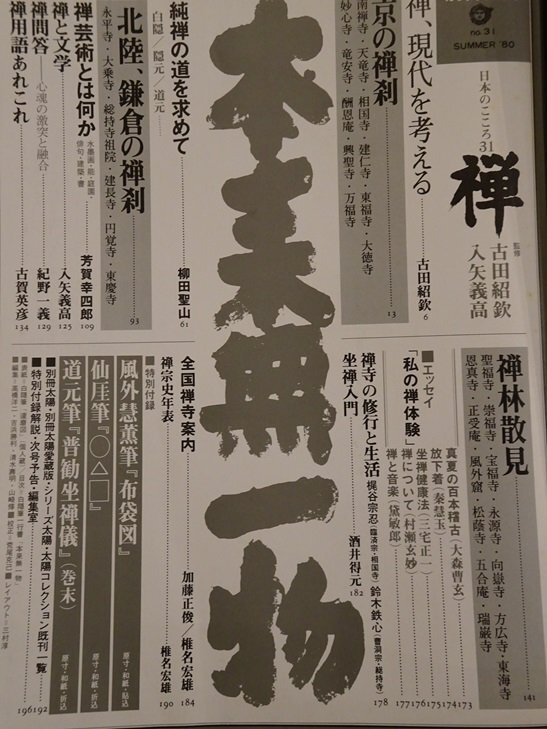 no.31
SUMMER '80
日本のこころ31
禅
監修
古田紹欽
入矢義高
禅、現代を考える
古田紹欽
6
京の禅刹
南禅寺・天竜寺・相国寺・建仁寺・東福寺・大徳寺
妙心寺・竜安寺・酬恩庵・興聖寺・万福寺
13
本来無一物
純禅の道を求めて
白隠/隠元/道元
柳田聖山
61
北陸、鎌倉の禅刹
永平寺・大乗寺・総持寺祖院・建長寺・円覚寺・東慶寺
93
禅芸術とは何か
水墨画・能・庭園・
俳句・建築・書
芳賀幸四郎
109
禅と文学
入矢義高
125
禅問答——心魂の激突と融合
紀野一義
129
禅用語あれこれ
古賀英彦
134
禅林散見
聖福寺・崇福寺・宝福寺・永源寺・向嶽寺・方広寺・東海寺
恩真寺・正受庵・風外窟・松蔭寺・五合庵・瑞巌寺
141
■エッセイ
「私の禅体験」
真夏の百本稽古(大森曹玄)
173
放下着(秦慧玉)
174
坐禅健康法(三宅正一)
175
禅について(村瀬玄妙)
176
禅と音楽(黛敏郎)
177
禅寺の修行と生活
梶谷宗忍(臨済宗・相国寺)
鈴木鉄心(曹洞宗・総持寺)
178
坐禅入門
酒井得元
182
全国禅寺案内
加藤正俊/椎名宏雄
184
禅宗史年表
椎名宏雄
190
■特別付録
風外慧薫筆『布袋図』
原寸・和紙・貼込
仙厓筆『○△□』
原寸・和紙・折込
道元筆『普勧坐禅儀』(巻末)
原寸・和紙・折込
■別冊太陽・別冊太陽愛蔵版・シリーズ太陽・太陽コレクション既刊一覧
192
■特別付録解説・次号予告・編集室
196
■表紙=白隠筆「達磨図」(個人蔵)/目次=白隠筆一行書「本来無一物」
■編集=高橋洋二・吉浜勝利・清水壽明・山崎修■校正=荒尾克己■レイアウト=三村淳